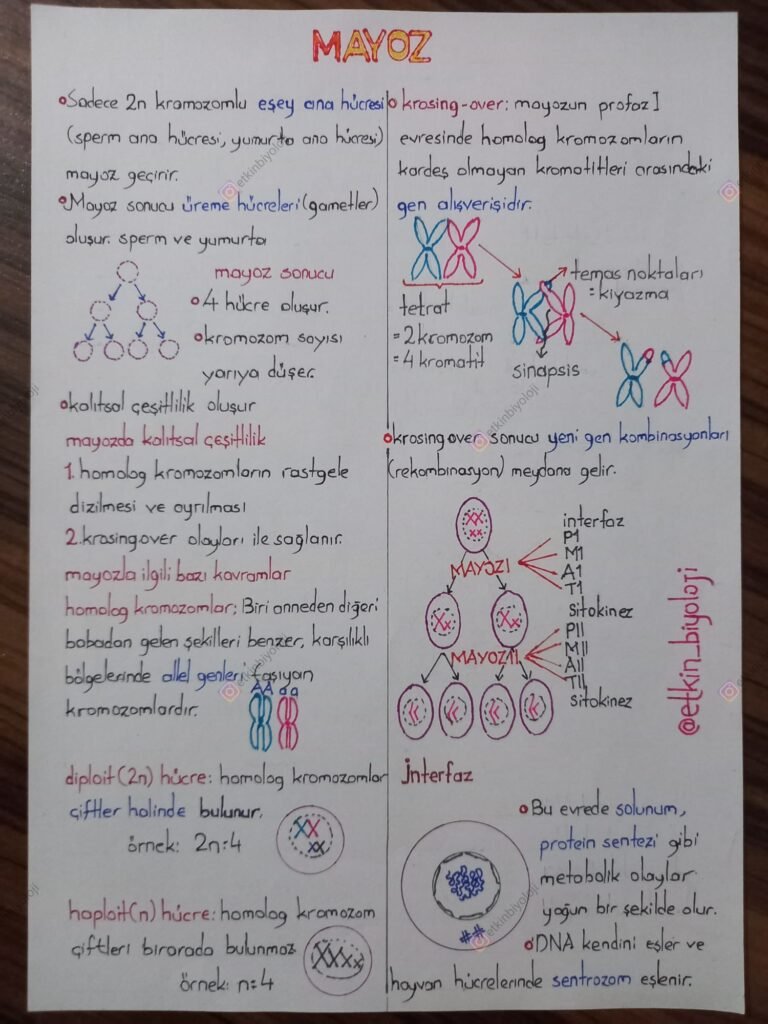 MAYOZ
Sadece 2n kromozomlu eşey ana hücresi
(sperm ana hücresi, yumurta ana hücresi)
mayoz geçirir.
Mayoz sonucu üreme hücreleri (gametler)
oluşur. sperm ve yumurta
mayoz sonucu
4 hücre oluşur.
kromozom sayısı
yarıya düşer.
kalıtsal çeşitlilik oluşur
mayozda kalıtsal çeşitlilik
1. homolog kromozomların rastgele
dizilmesi ve ayrılması
2. krosingover olayları ile sağlanır.
mayozla ilgili bazı kavramlar
homolog kromozomlar: Biri anneden diğeri
babadan gelen şekilleri benzer, karşılıklı
bölgelerinde allel genleri taşıyan
AA aa
kromozomlardır.
diploit (2n) hücre: homolog kromozomlar
çiftler halinde bulunur.
örnek: 2n:4
haploit(n) hücre: homolog kromozom
çiftleri birarada bulunmaz
örnek: n=4
krosing-over: mayozun profaz I
evresinde homolog kromozomların
kardeş olmayan kromatitleri arasındaki
gen alışverişidir.
temas noktaları
= kiyazma
tetrat
= 2 kromozom
= 4 kromatit
sinapsis
krosingover sonucu yeni gen kombinasyonları
(rekombinasyon) meydana gelir.
interfaz
P1
MAYOZ I
M1
A1
T1
Sitokinez
PII
MAYOZ II
MII
AII
TII
Sitokinez
@etkin_biyoloji
İnterfaz
Bu evrede solunum,
protein sentezi gibi
metabolik olaylar
yoğun bir şekilde olur.
DNA kendini eşler ve
hayvan hücrelerinde sentrozom eşlenir.
etkinbiyoloji
etkinbiyoloji
etkinbiyoloji
etkinbiyoloji